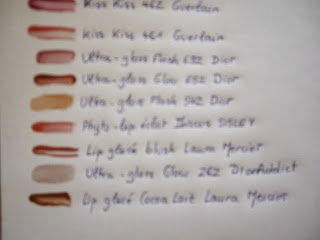 Kiss Kiss 462 Guerlain
Kiss Kiss 461 Guerlain
Ultra-gloss Flash 632 Dior
Ultra-gloss Glow 652 Dior
Ultra-gloss Flash 542 Dior
Phyto-lip éclat SISLEY
Lip glacé blush Laura Mercier
Ultra-gloss Glow 262 DiorAddict
Lip glacé Cocoa Lait Laura Mercier